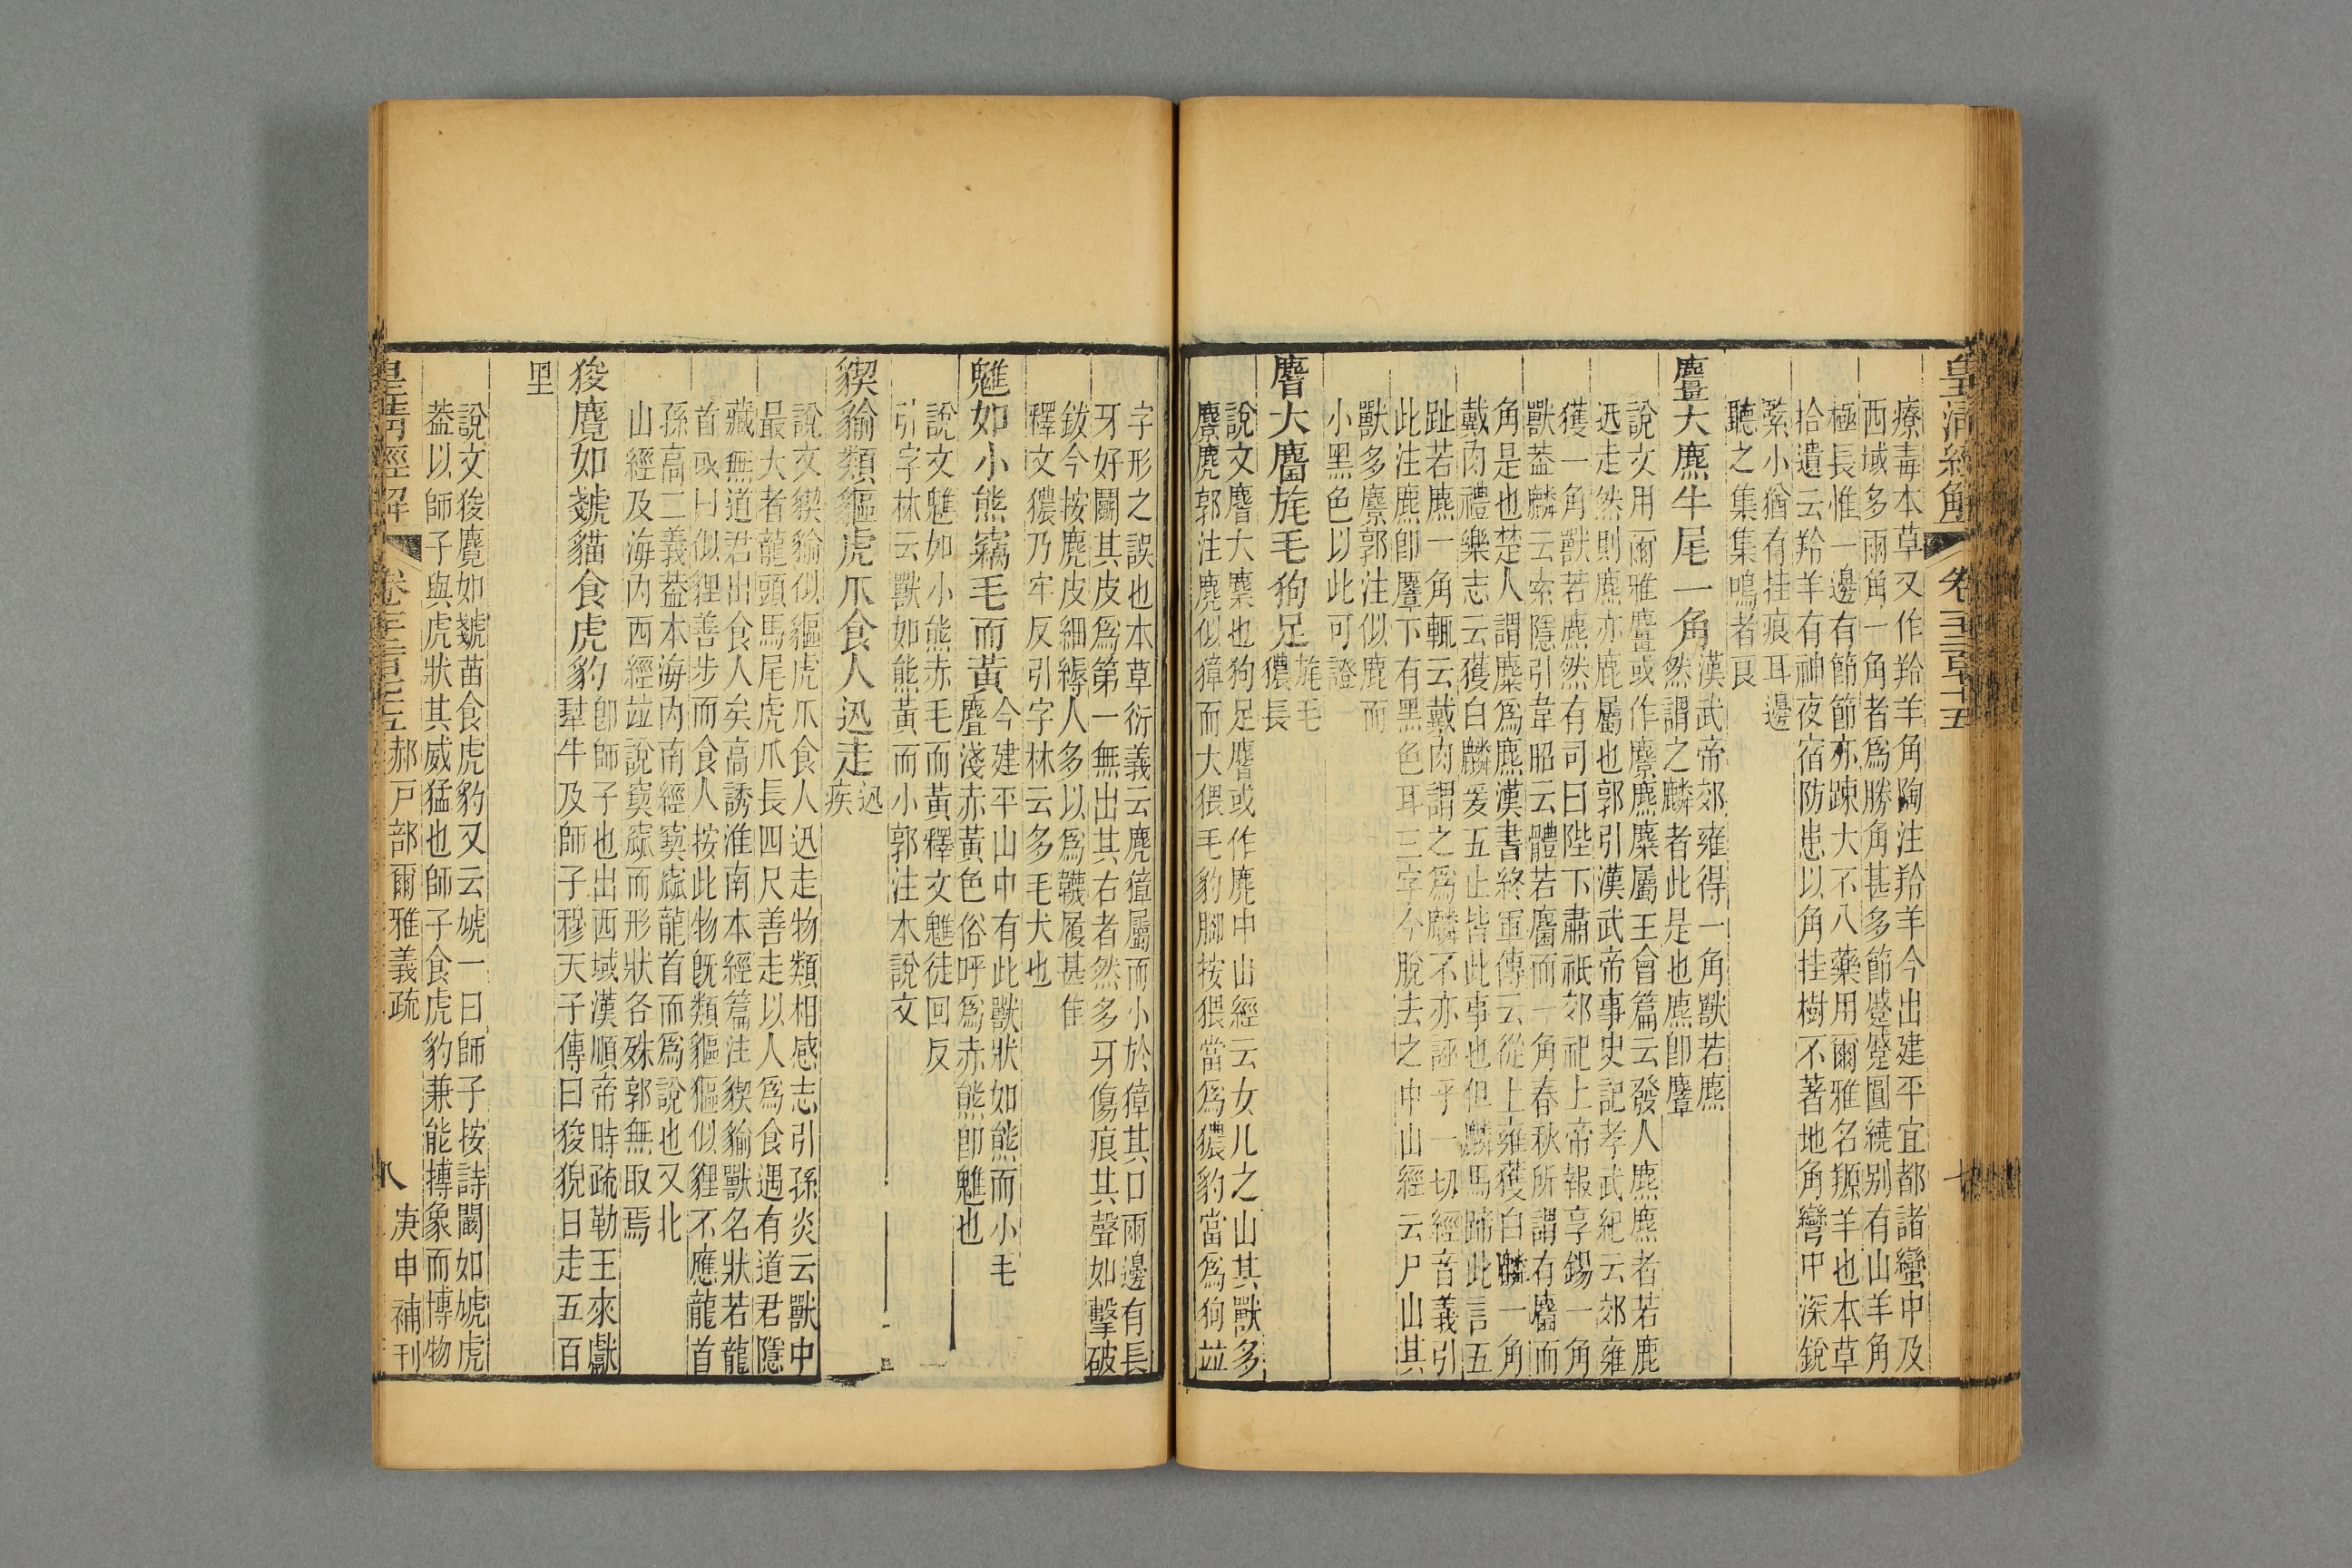 皇清經解
卷千二百七十五
七
療毒本草又作羚羊角陶注羚羊今出建平宜都諸蠻中及
西域多兩角一角者爲勝角甚多節蹙蹙圓繞别有山羊角
極長惟一邊有節節亦踈大不入藥用爾雅名羱羊也本草
拾遺云羚羊有神夜宿防患以角挂樹不著地角彎中深銳
緊小猶有挂痕耳邊
聽之集集鳴者良
麠大麃牛尾一角
漢武帝郊雍得一角獸若麃
然謂之麟者此是也麃卽麞
說文用爾雅麠或作麖麃麋屬王會篇云發人麃麃者若鹿
迅走然則麃亦鹿屬也郭引漢武帝事史記孝武紀云郊雍
獲一角獸若麃然有司曰陛下肅祇郊祀上帝報享錫一角
獸葢麟云索隱引韋昭云體若麕而一角春秋所謂有麕而
角是也楚人謂麋爲麃漢書終軍傳云從上雍獲白麟一角
戴肉禮樂志云獲白麟爰五止皆此事也但麟馬蹄此言五
趾若麃一角輒云戴肉謂之爲麟不亦誣乎一切經音義引
此注麃卽麞下有黑色耳三字今脫去之中山經云尸山其
獸多麖郭注似鹿而
小黑色以此可證
麔大麕旄毛狗足
旄毛
獷長
說文麔大麋也狗足麔或作麂中山經云女几之山其獸多
麖麂郭注麂似獐而大猥毛豹腳按猥當爲獷豹當爲狗竝
字形之誤也本草衍義云麂獐屬而小於獐其口兩邊有長
牙好鬭其皮爲第一無出其右者然多牙傷痕其聲如擊破
鈸今按麂皮細縟人多以爲韈履甚佳
釋文獷乃牢反引字林云多毛犬也
魋如小熊竊毛而黃
今建平山中有此獸狀如熊而小毛
麆淺赤黃色俗呼爲赤熊卽魋也
說文魋如小熊赤毛而黃釋文魋徒回反
引字林云獸如熊黃而小郭注本說文
猰貐類貙虎爪食人迅走
迅
疾
說文猰貐似貙虎爪食人迅走物類相感志引孫炎云獸中
最大者龍頭馬尾虎爪長四尺善走以人爲食遇有道君隱
藏無道君出食人矣高誘淮南本經篇注猰貐獸名狀若龍
首或曰似狸善步而食人按此物旣類貙貙似狸不應龍首
孫高二義葢本海内南經窫窳龍首而爲說也又北
山經及海内西經竝說窫窳而形狀各殊郭無取焉
狻麑如虦貓食虎豹
卽師子也出西域漢順帝時疏勒王來獻
犎牛及師子穆天子傳曰狻猊日走五百
里
說文狻麑如虦苗食虎豹又云虓一曰師子按詩闞如虓虎
葢以師子與虎狀其威猛也師子食虎豹兼能摶象而博物
皇淸經解
卷千二百七十五
郝戶部爾雅義疏
八
庚申補刊